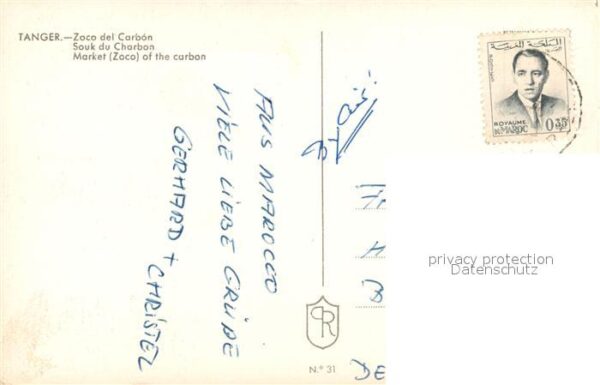 TANGER.—Zoco del Carbón
Souk du Charbon
Market (Zoco) of the carbon
AUS MAROCCO
VIELE LIEBE GRÜßE
GERHARD + CHRISTEL
المملكة المغربية
POSTES
ROYAUME
DU MAROC
0,35
privacy protection
Datenschutz
N.º 31
DE